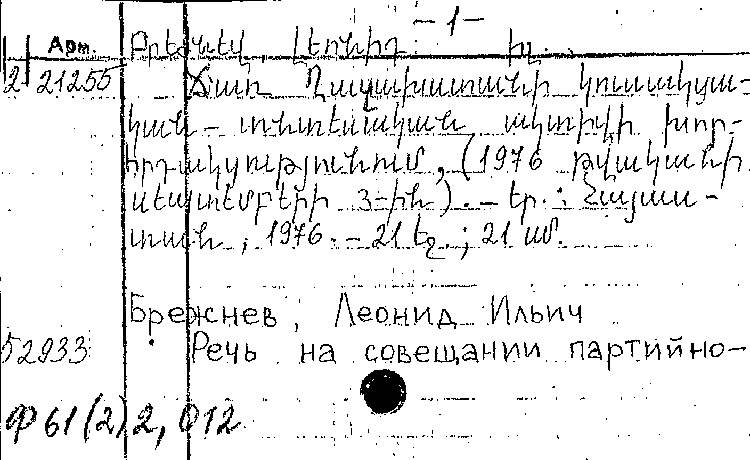 - 1 -
Арм. Բրեժնև, Լեոնիդ Իլ.
2 21255 Ճառ Ղազախստանի կուսակցա-
կան - տնտեսական ակտիվի խոր-
հրդակցությունում, (1976 թվականի
սեպտեմբերի 3-ին). - Եր.: Հայաս-
տան, 1976. - 21 էջ.; 21 սմ.
Брежнев, Леонид Ильич
52933 Речь на совещании партийно-
Ф 61(2)2, 012